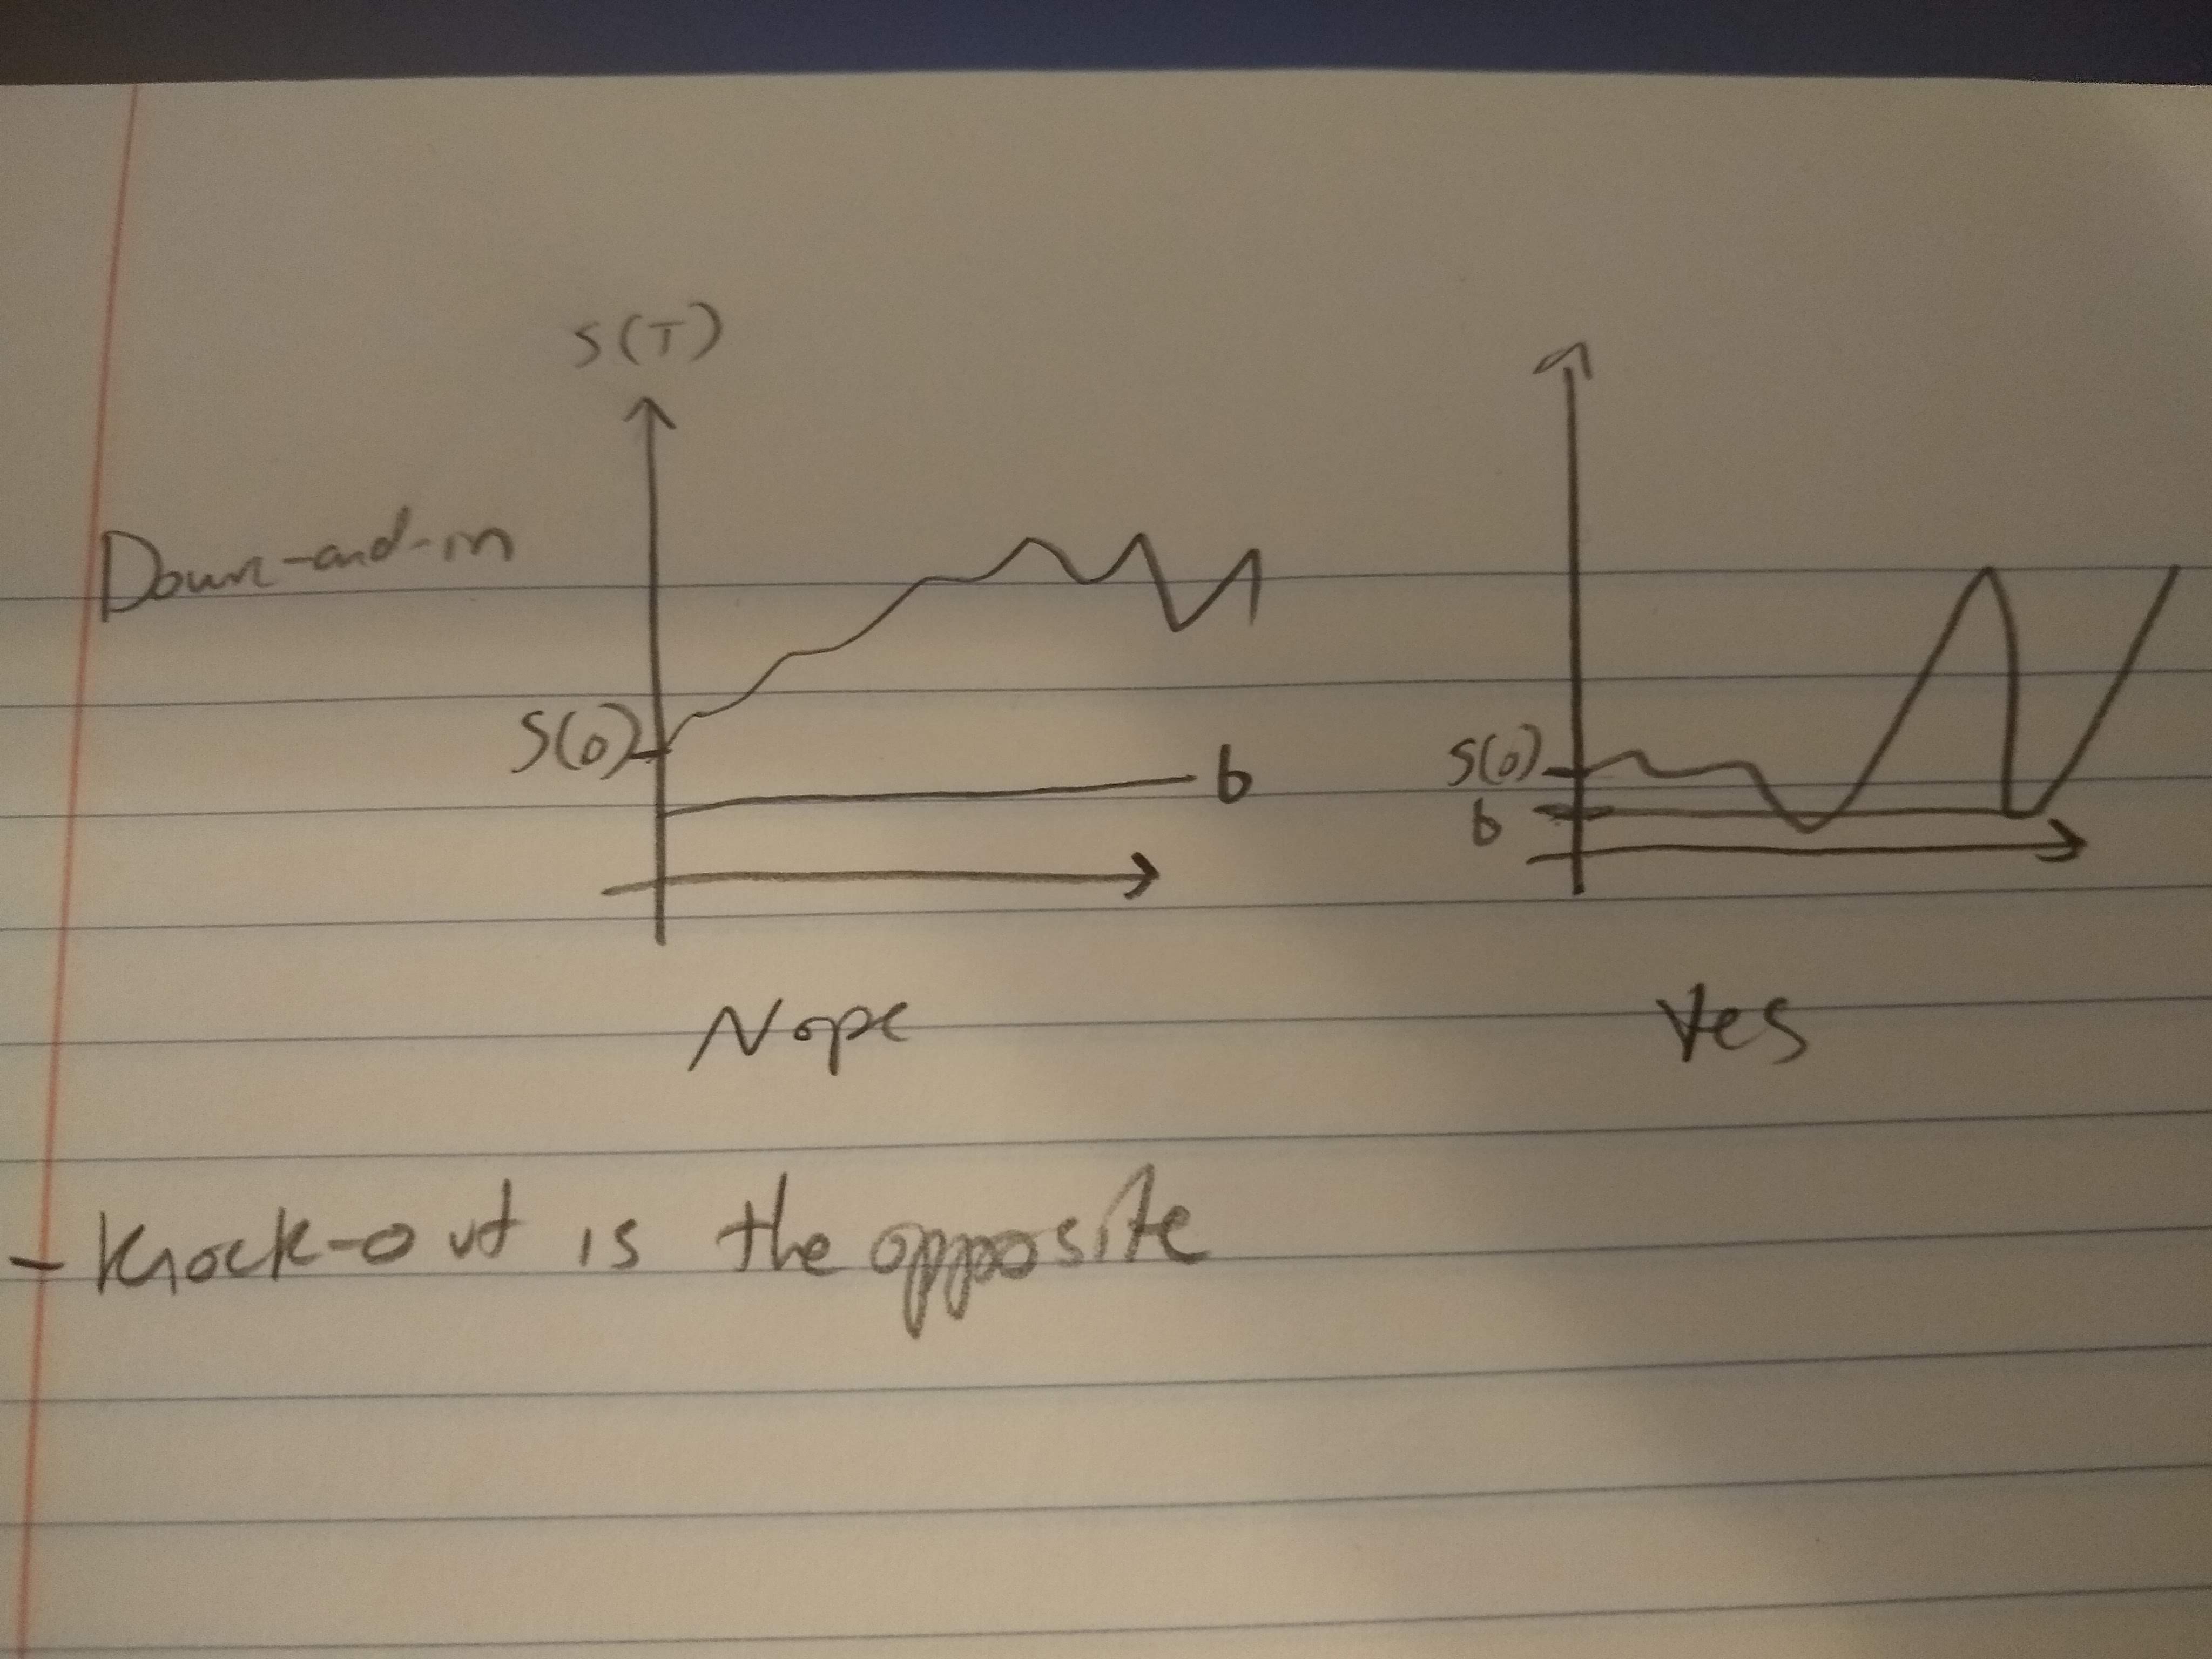 S(T)
Down-and-in
S(0)
b
S(0)
b
Nope
Yes
- Knock-out is the opposite